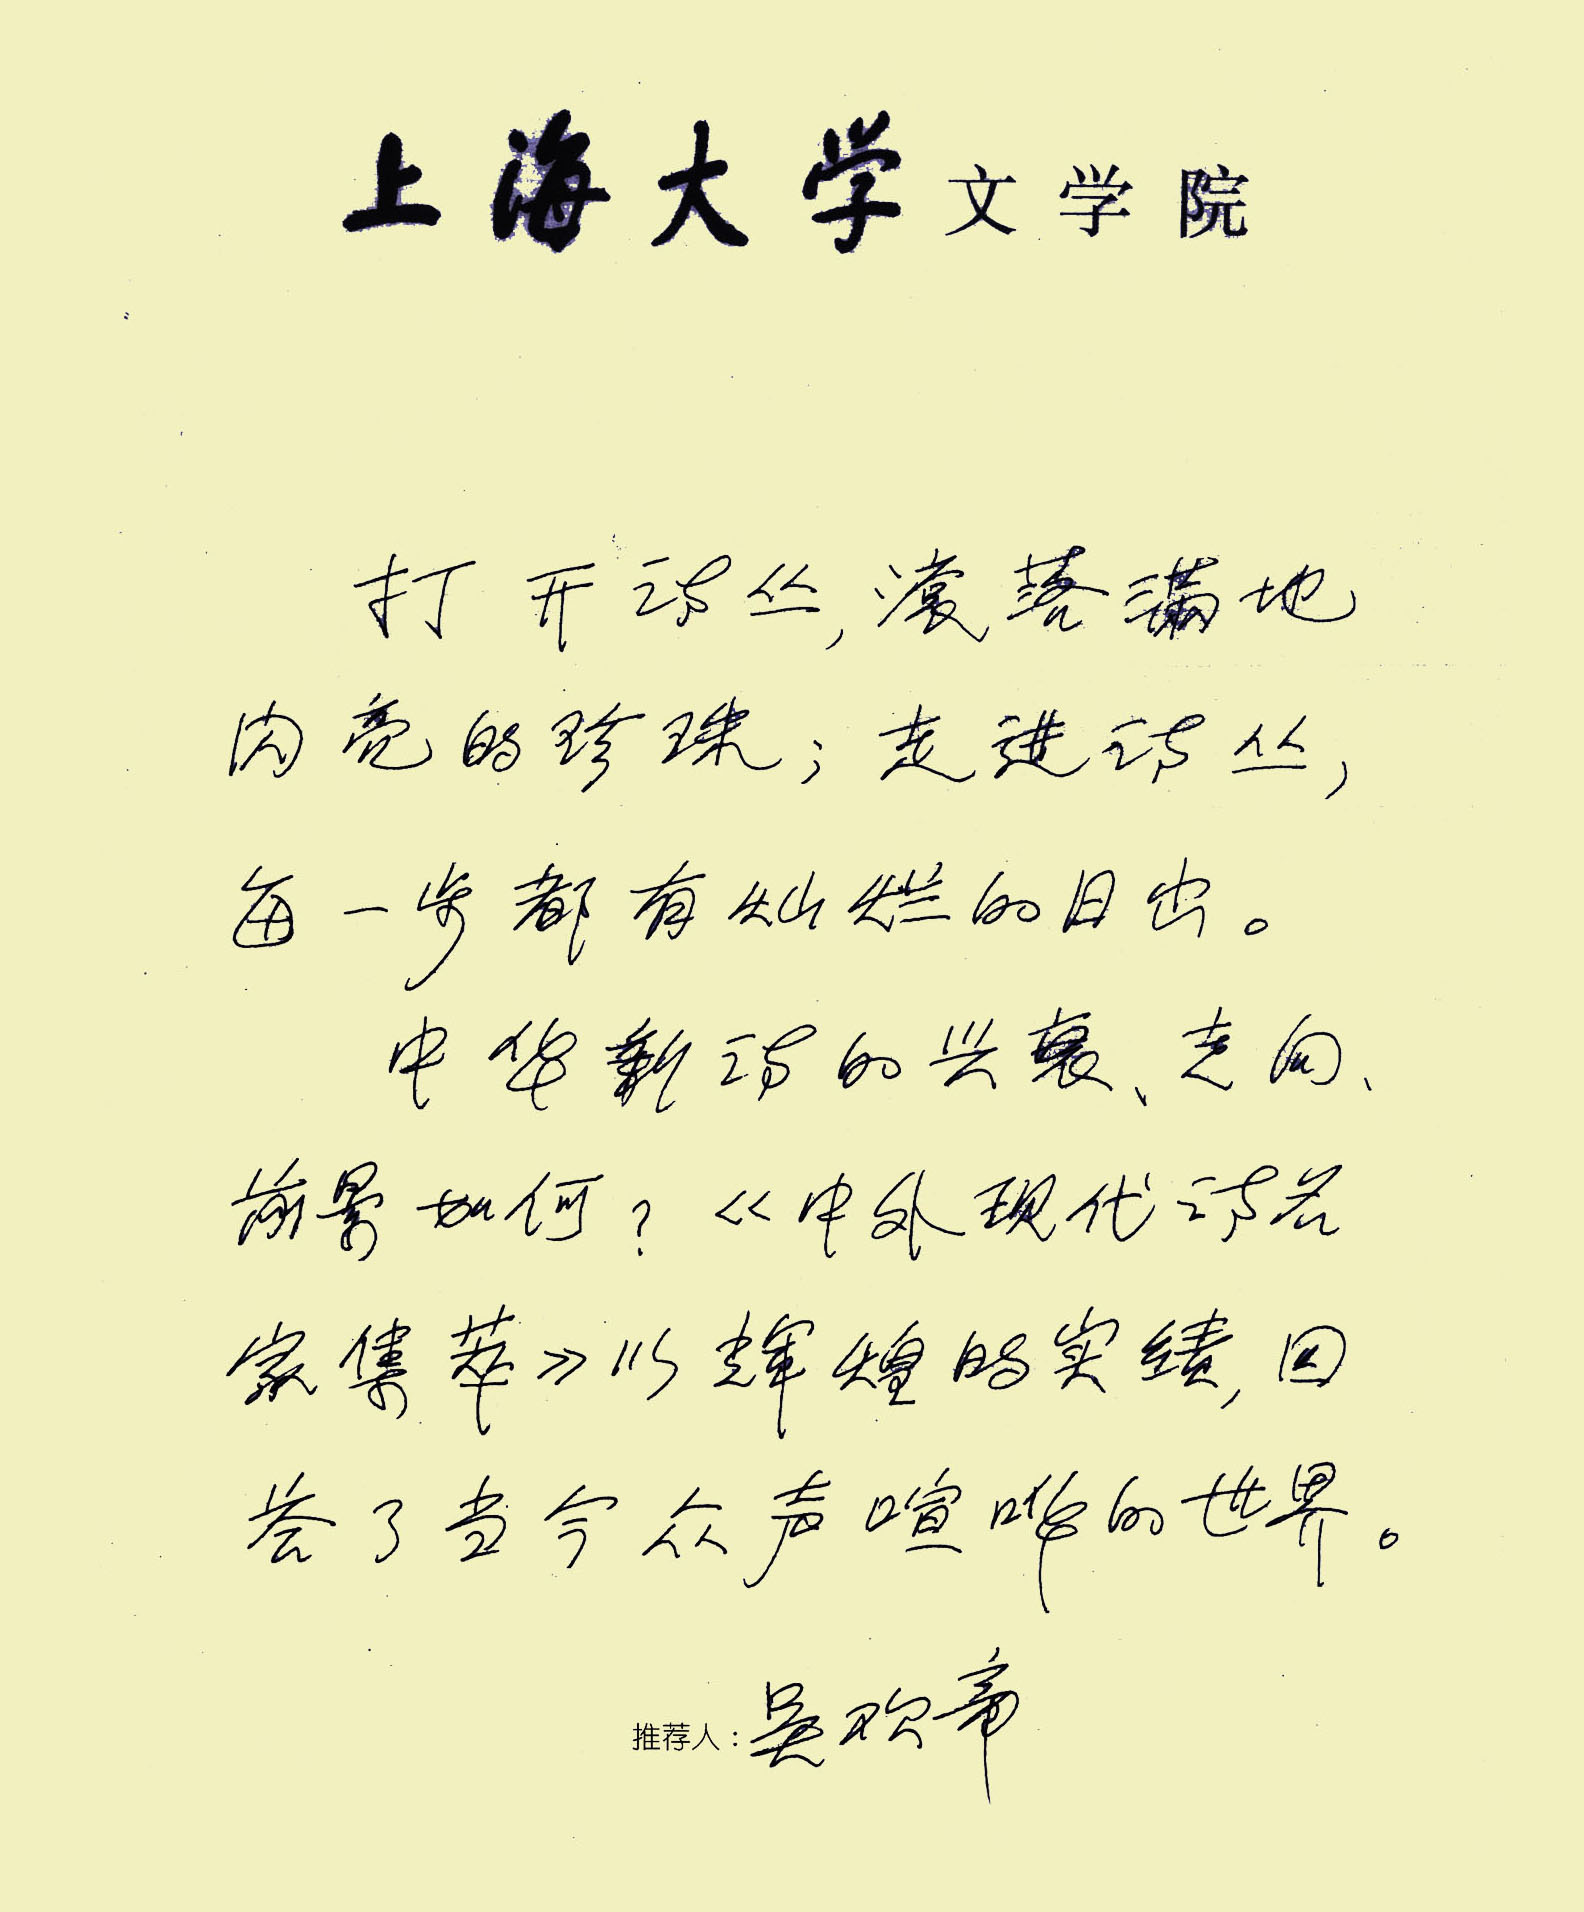 上海大学文学院
打开诗丛,滚落满地
闪亮的珍珠;走进诗丛,
每一步都有灿烂的日出。
中华新诗的兴衰、走向、
前景如何?《中外现代诗名
家集萃》以辉煌的实绩,回
答了当今众声喧哗的世界。
推荐人:吴欢章